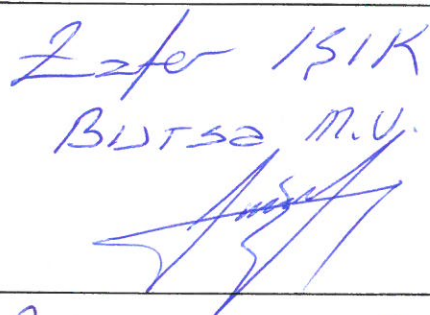 Zafer IŞIK
Bursa M.V.